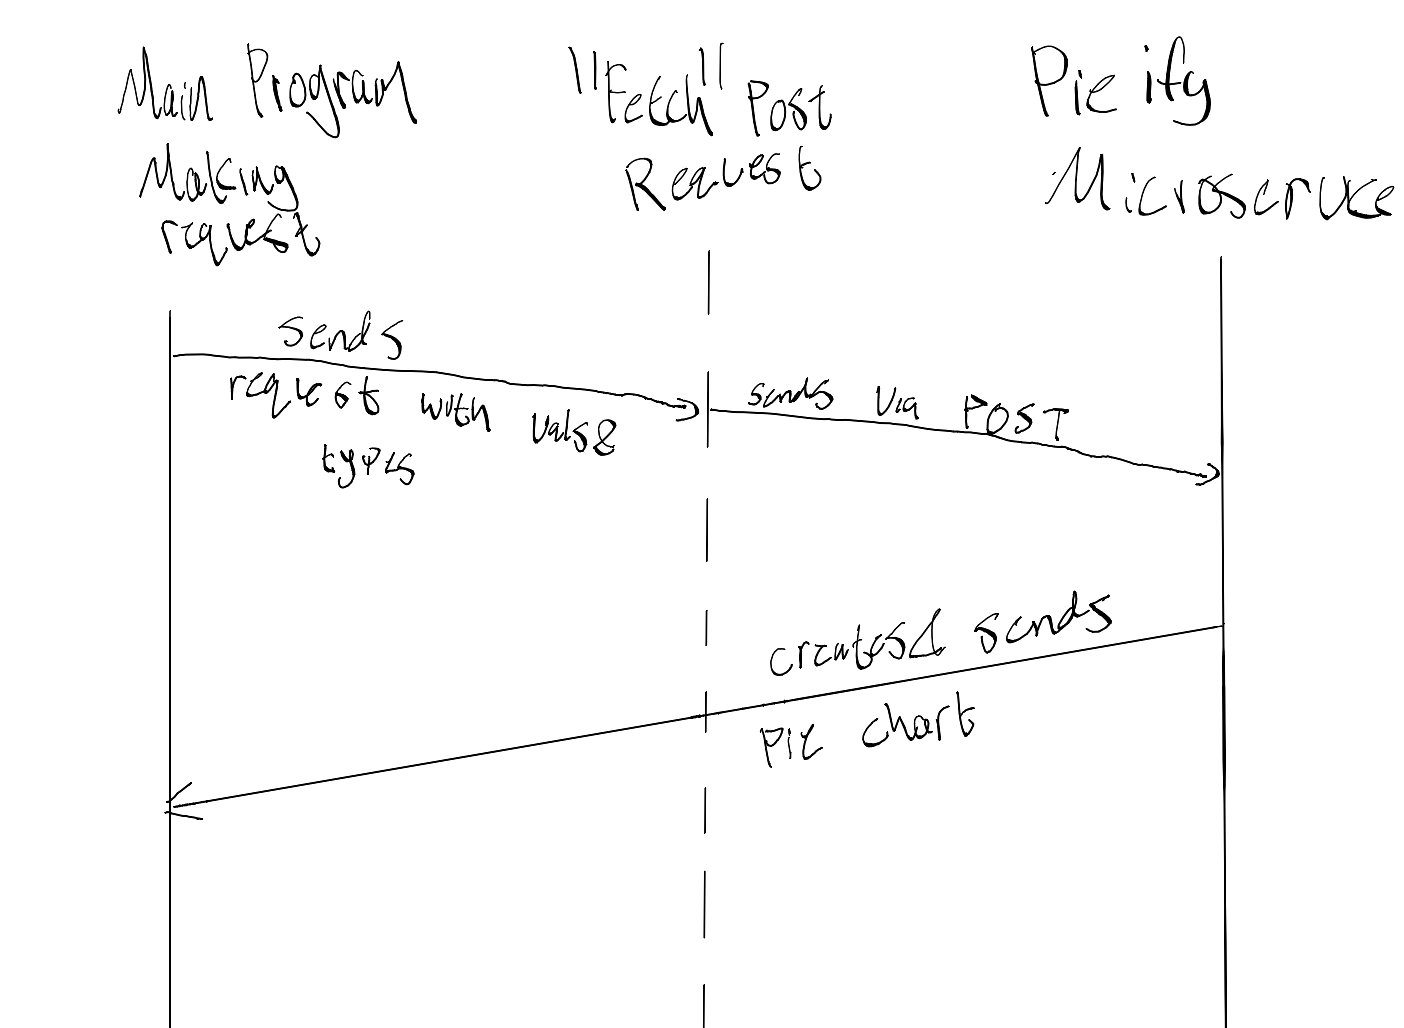 Main Program
Making
request
"Fetch" Post
Request
Pie ify
Microservice
sends
request with vals&
types
sends via POST
creates& sends
pie chart